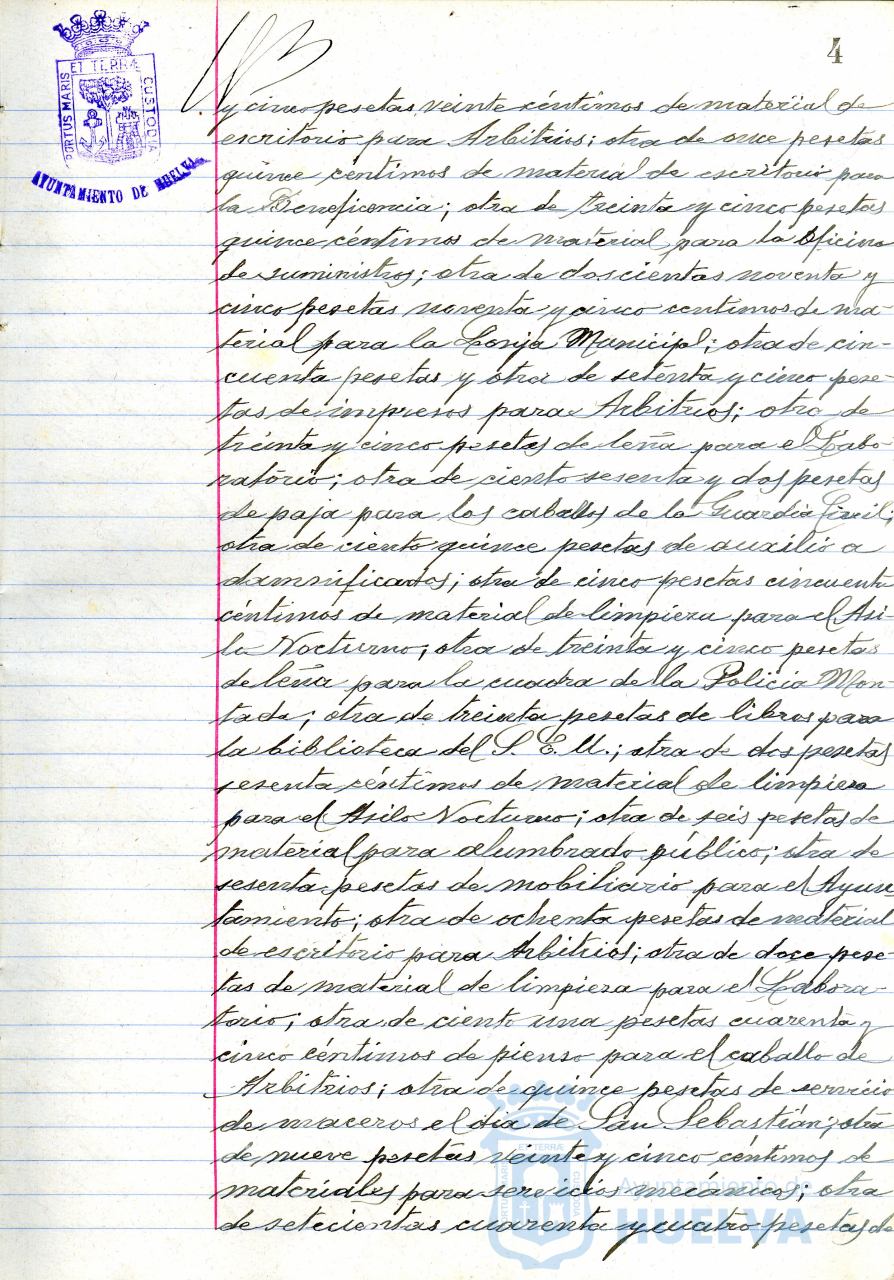 4
PORTUS MARIS ET TERRÆ CUSTODIA
AYUNTAMIENTO DE HUELVA
y cinco pesetas veinte céntimos de material de
escritorio para Arbitrios; otra de once pesetas
quince céntimos de material de escritorio para
la Beneficencia; otra de treinta y cinco pesetas
quince céntimos de material para la Oficina
de suministros; otra de doscientas noventa y
cinco pesetas noventa y cinco centimos de ma-
terial para la Lonja Municipal; otra de cin-
cuenta pesetas y otra de setenta y cinco pese-
tas de impresos para Arbitrios; otra de
treinta y cinco pesetas de leña para el Labo-
ratorio; otra de ciento sesenta y dos pesetas
de paja para los caballos de la Guardia Civil;
otra de ciento quince pesetas de auxilio a
damnificados; otra de cinco pesetas cincuenta
céntimos de material de limpieza para el Asi-
lo Nocturno; otra de treinta y cinco pesetas
de leña para la cuadra de la Policia Mon-
tada; otra de treinta pesetas de libros para
la biblioteca del S. E. U.; otra de dos pesetas
sesenta céntimos de material de limpieza
para el Asilo Nocturno; otra de seis pesetas de
material para alumbrado público; otra de
sesenta pesetas de mobiliario para el Ayun-
tamiento; otra de ochenta pesetas de material
de escritorio para Arbitrios; otra de doce pese-
tas de material de limpieza para el Labora-
torio; otra de ciento una pesetas cuarenta y
cinco céntimos de pienso para el caballo de
Arbitrios; otra de quince pesetas de servicio
de maceros el dia de San Sebastián; otra
de nueve pesetas veinte y cinco céntimos de
materiales para servicios mecánicos; otra
de setecientas cuarenta y cuatro pesetas de
Ayuntamiento de
HUELVA